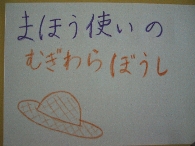 まほう使いの
むぎわらぼうし